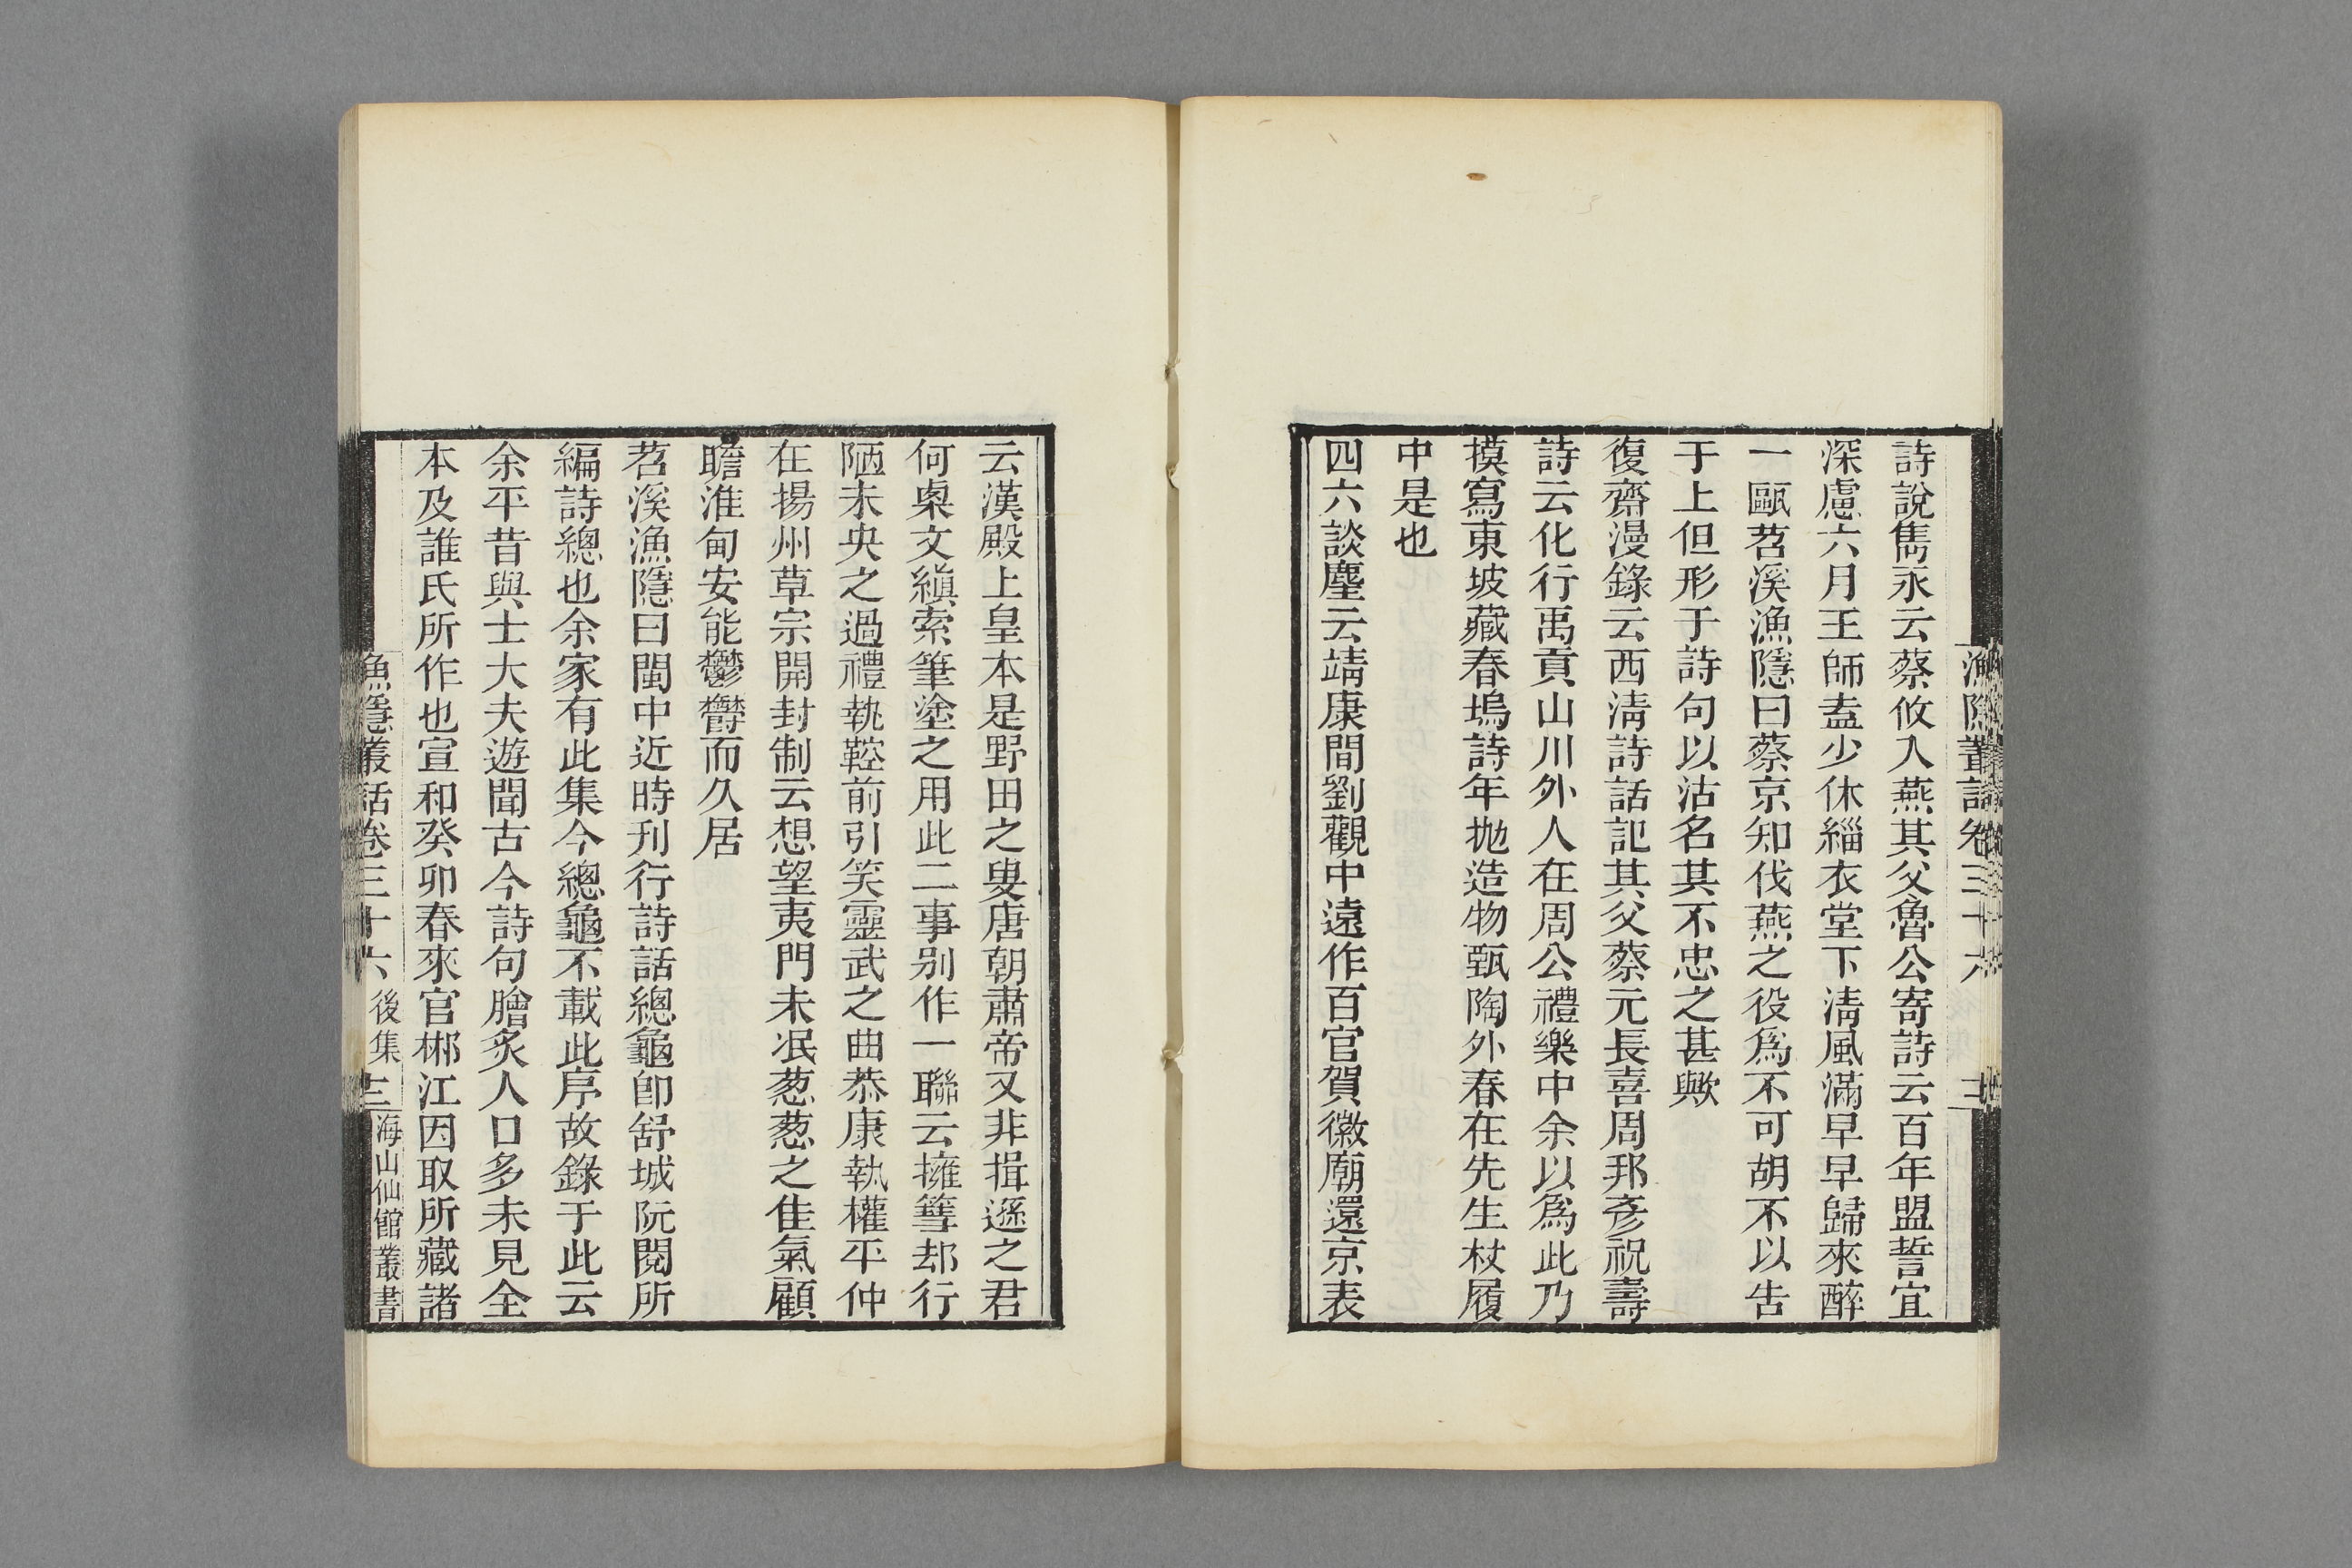 詩說雋永云蔡攸入燕其父魯公寄詩云百年盟誓宜
深慮六月王師盍少休緇衣堂下清風滿早早歸來醉
一甌苕溪漁隱曰蔡京知伐燕之役爲不可胡不以告
于上但形于詩句以沽名其不忠之甚歟
復齋漫錄云西清詩話記其父蔡元長喜周邦彥祝壽
詩云化行禹貢山川外人在周公禮樂中余以爲此乃
摸寫東坡藏春塢詩年抛造物甄陶外春在先生杖履
中是也
四六談麈云靖康間劉觀中遠作百官賀徽廟還京表
云漢殿上皇本是野田之叟唐朝肅帝又非揖遜之君
何㮚文縝索筆塗之用此二事别作一聯云擁篲却行
陋未央之過禮執鞚前引笑靈武之曲恭康執權平仲
在揚州草宗開封制云想望夷門未泯葱葱之佳氣顧
瞻淮甸安能鬱鬱而久居
苕溪漁隱曰閩中近時刋行詩話總龜卽舒城阮閱所
編詩總也余家有此集今總龜不載此序故錄于此云
余平昔與士大夫遊聞古今詩句膾炙人口多未見全
本及誰氏所作也宣和癸卯春來官郴江因取所藏諸
漁隱叢話卷三十六 後集 三 海山仙館叢書